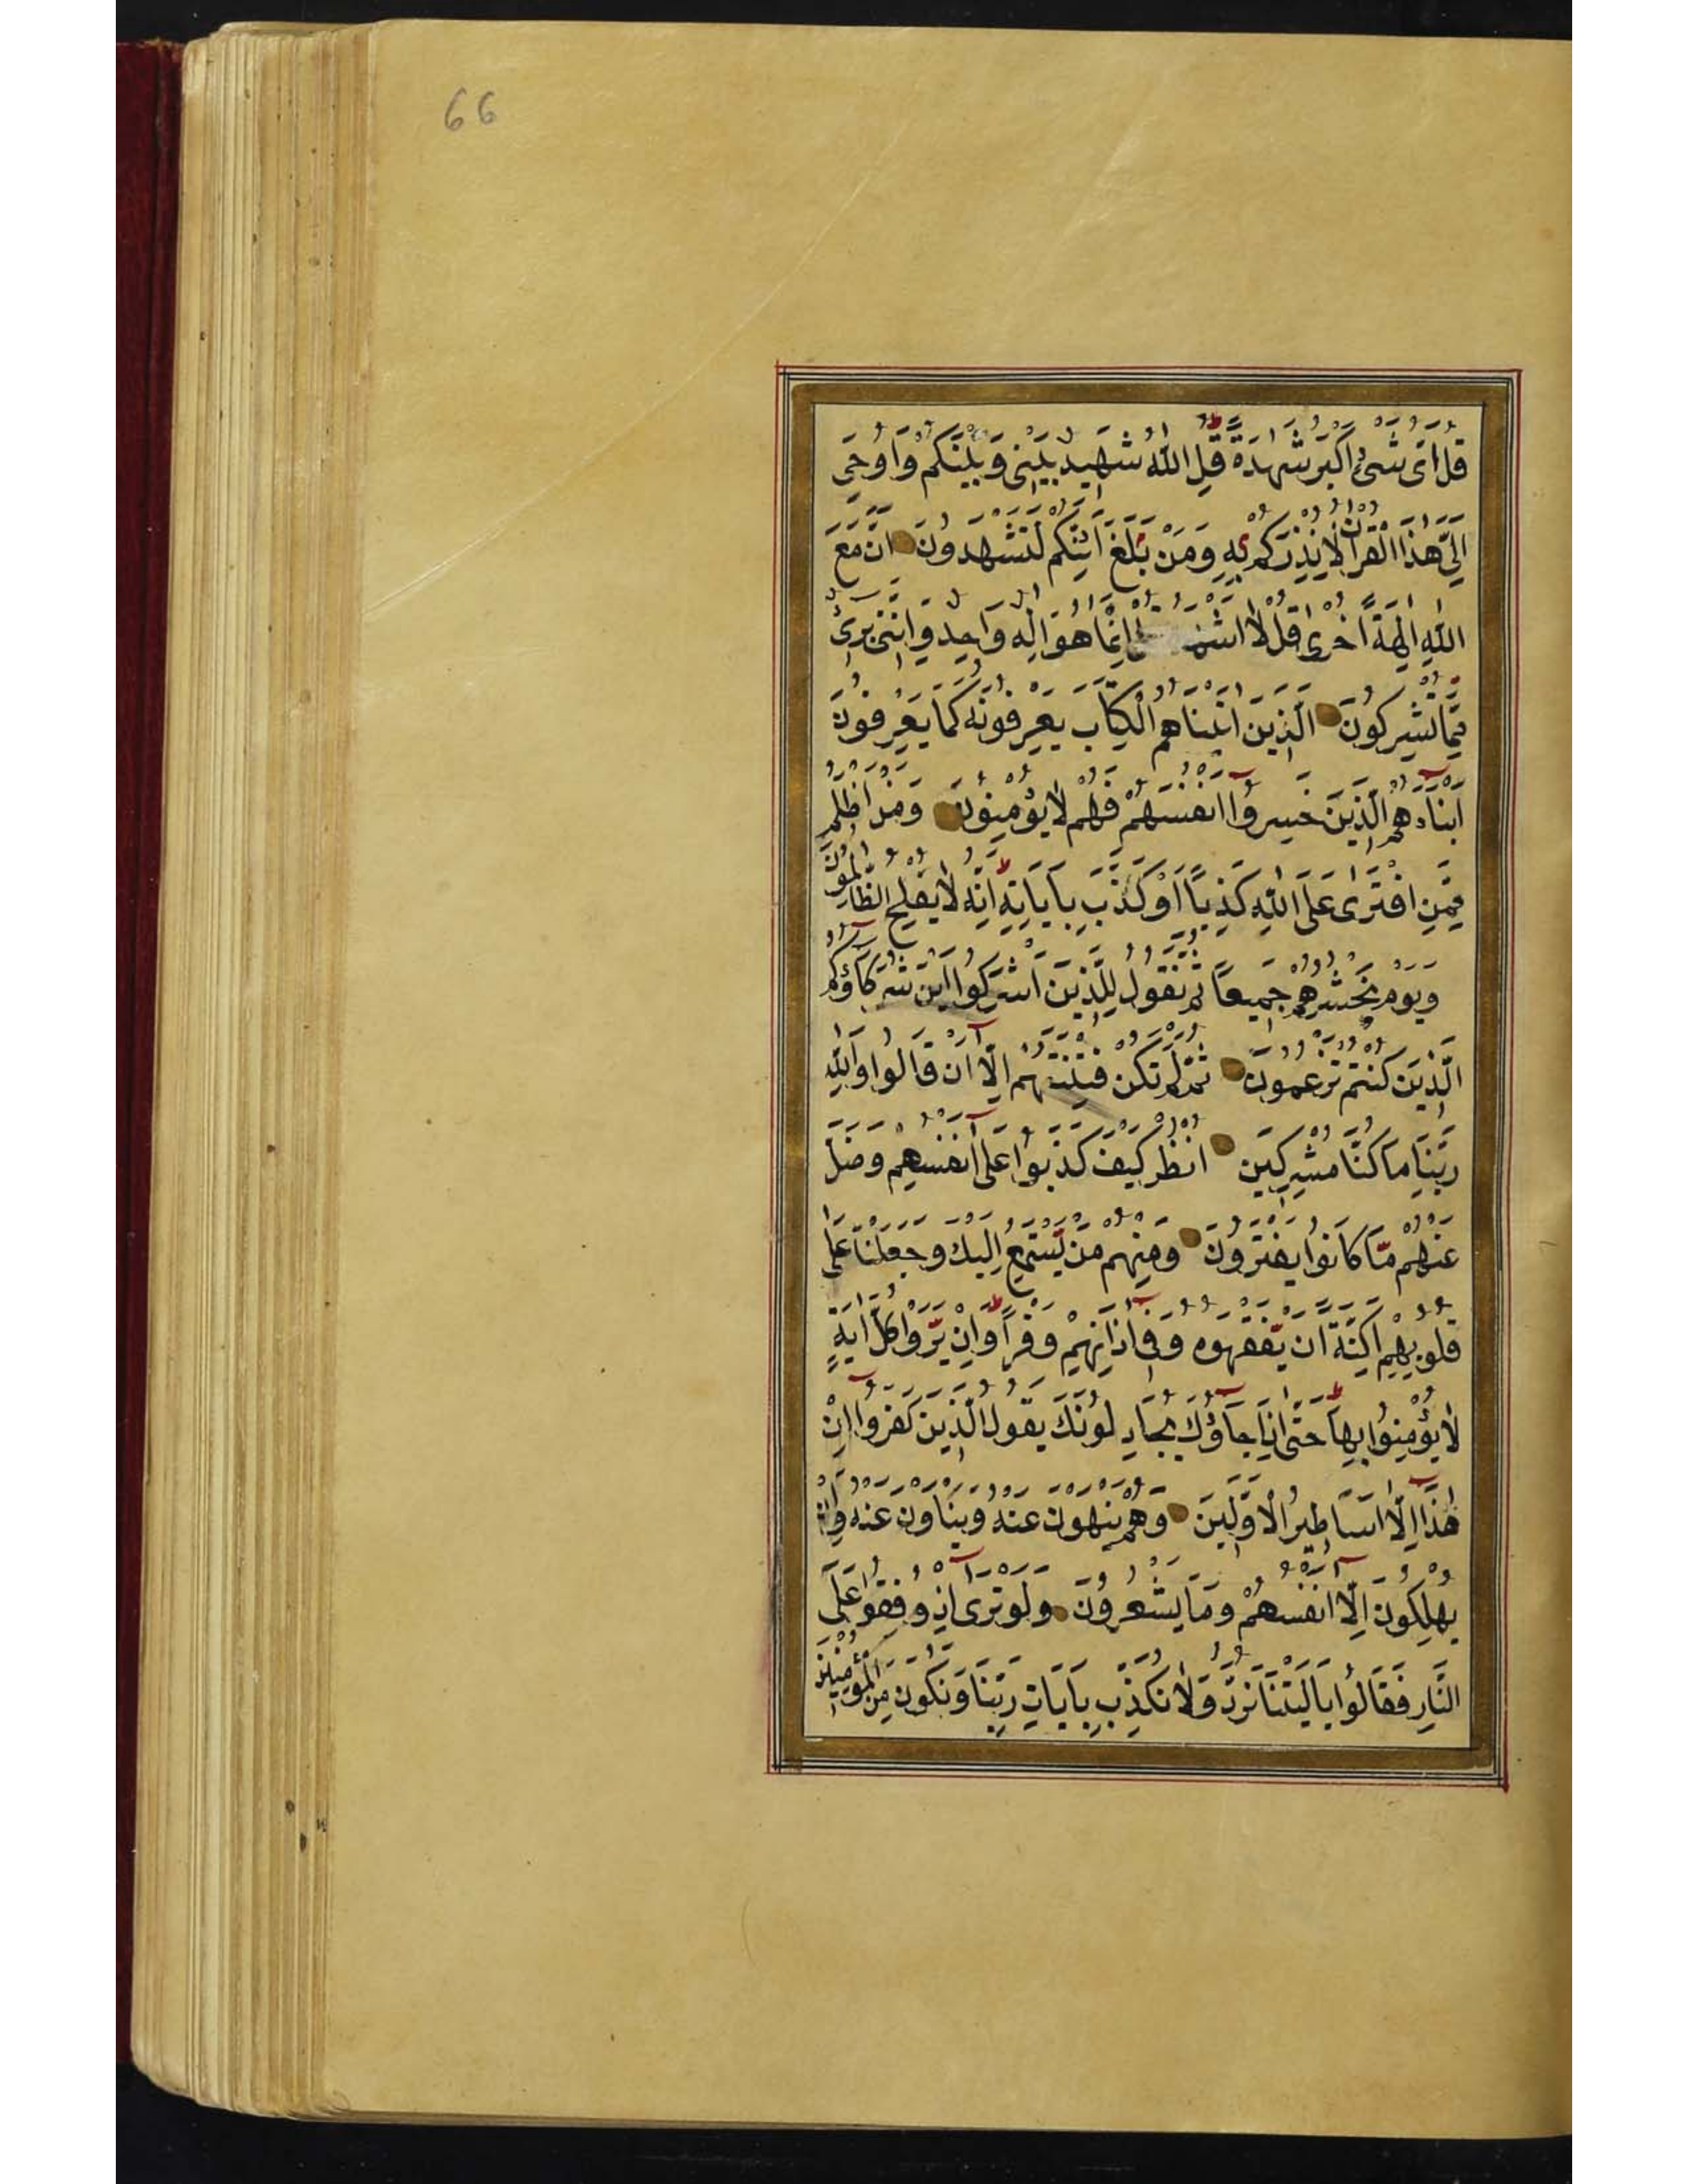 66
قُلْ اَىُّ شَىْءٍ اَكْبَرُ شَهٰدَةً قُلِ اللّٰهُ شَهِيدٌ بَيْنِى وَبَيْنَكُمْ وَاُوحِىَ
اِلَىَّ هٰذَا الْقُرْاٰنُ لِاُنْذِرَكُمْ بِهِ وَمَنْ بَلَغَ اَئِنَّكُمْ لَتَشْهَدُونَ اَنَّ مَعَ
اللّٰهِ اٰلِهَةً اُخْرٰى قُلْ لَا اِنَّمَا هُوَ اِلٰهٌ وَاحِدٌ وَاِنَّنِى بَرِىءٌ
مِمَّا تُشْرِكُونَ الَّذِينَ اٰتَيْنَاهُمُ الْكِتَابَ يَعْرِفُونَهُ كَمَا يَعْرِفُونَ
اَبْنَاءَهُمُ الَّذِينَ خَسِرُوا اَنْفُسَهُمْ فَهُمْ لَا يُؤْمِنُونَ وَمَنْ اَظْلَمُ
مِمَّنِ افْتَرٰى عَلَى اللّٰهِ كَذِبًا اَوْ كَذَّبَ بِاٰيَاتِهِ اِنَّهُ لَا يُفْلِحُ الظَّالِمُونَ
وَيَوْمَ نَحْشُرُهُمْ جَمِيعًا ثُمَّ نَقُولُ لِلَّذِينَ اَشْرَكُوا اَيْنَ شُرَكَاؤُكُمُ
الَّذِينَ كُنْتُمْ تَزْعُمُونَ ثُمَّ لَمْ تَكُنْ فِتْنَتُهُمْ اِلَّا اَنْ قَالُوا وَاللّٰهِ
رَبِّنَا مَا كُنَّا مُشْرِكِينَ انْظُرْ كَيْفَ كَذَبُوا عَلٰى اَنْفُسِهِمْ وَضَلَّ
عَنْهُمْ مَّا كَانُوا يَفْتَرُونَ وَمِنْهُمْ مَنْ يَّسْتَمِعُ اِلَيْكَ وَجَعَلْنَا عَلٰى
قُلُوبِهِمْ اَكِنَّةً اَنْ يَّفْقَهُوهُ وَفِى اٰذَانِهِمْ وَقْرًا وَاِنْ يَّرَوْا كُلَّ اٰيَةٍ
لَا يُؤْمِنُوا بِهَا حَتّٰى اِذَا جَاؤُكَ يُجَادِلُونَكَ يَقُولُ الَّذِينَ كَفَرُوا اِنْ
هٰذَا اِلَّا اَسَاطِيرُ الْاَوَّلِينَ وَهُمْ يَنْهَوْنَ عَنْهُ وَيَنْاَوْنَ عَنْهُ وَاِنْ
يُهْلِكُونَ اِلَّا اَنْفُسَهُمْ وَمَا يَشْعُرُونَ وَلَوْ تَرٰى اِذْ وُقِفُوا عَلَى
النَّارِ فَقَالُوا يَا لَيْتَنَا نُرَدُّ وَلَا نُكَذِّبَ بِاٰيَاتِ رَبِّنَا وَنَكُونَ مِنَ الْمُؤْمِنِينَ